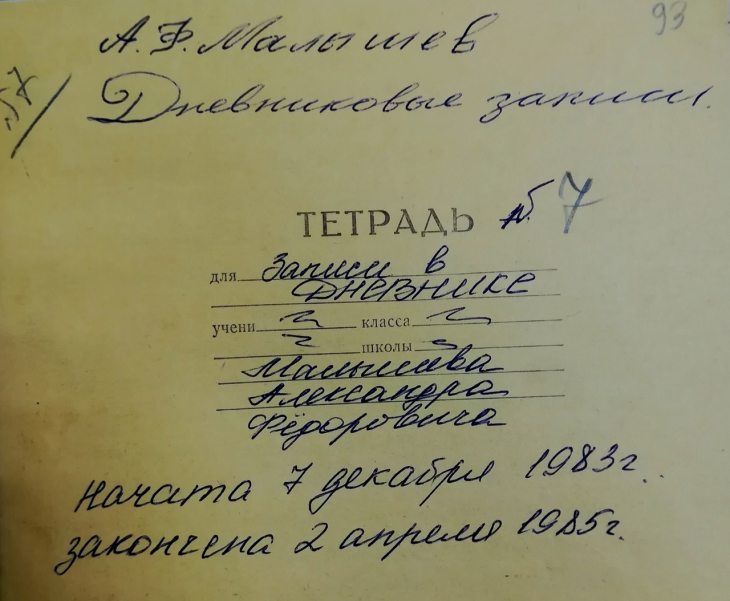 93
А.Ф. Малышев
Дневниковые записи.
ТЕТРАДЬ № 7
для Записи в
ДНЕВНИКЕ
учени класса
школы
Малышева
Александра
Фёдоровича
Начата 7 декабря 1983г.
закончена 2 апреля 1985г.